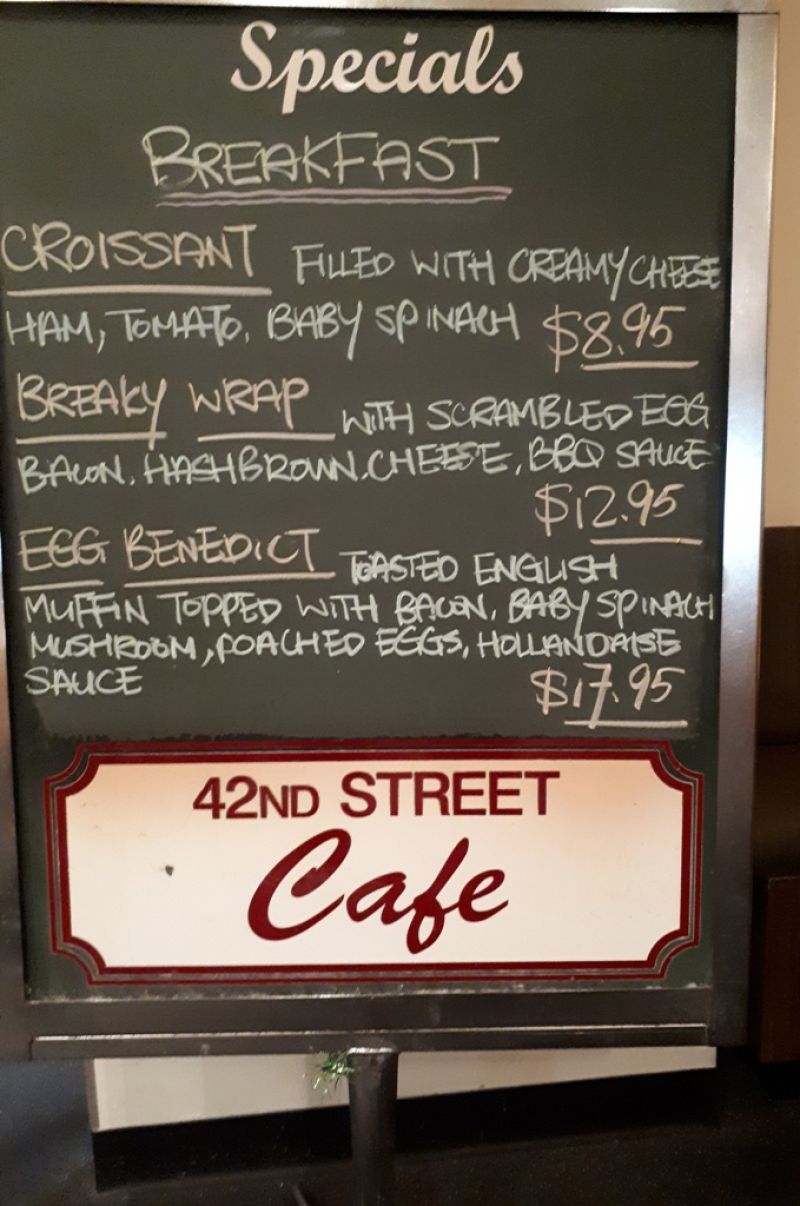 Specials
BREAKFAST
CROISSANT FILLED WITH CREAMY CHEESE
HAM, TOMATO, BABY SPINACH $8.95
BREAKY WRAP WITH SCRAMBLED EGG
BACON, HASHBROWN, CHEESE, BBQ SAUCE
$12.95
EGG BENEDICT TOASTED ENGLISH
MUFFIN TOPPED WITH BACON, BABY SPINACH
MUSHROOM, POACHED EGGS, HOLLANDAISE
SAUCE $17.95
42ND STREET
Cafe